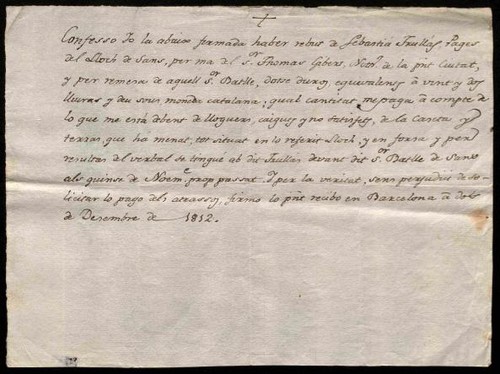 Confesso Jo la abaix firmada haber rebut de Sebastiá Trullas, Pages
del Lloch de Sans, per ma del Sr. Thomas Gibert, Notri. de la pnt Ciutat,
y per remesa de aquell Sr. Batlle, dotse duros, equivalens á vint y dos
lliuras y deu sous, moneda catalana; qual cantitat me paga á compte de
lo que me está debent de lloguers, caiguts y no satisfets, de la Caseta y
terras, que ha menat, tot situat en lo referit Lloch, y en forsa y per
resultat del verbal se tingué ab dit Trullas devant dit Sr. Batlle de Sans
als quinse de Noeme. prop passat. Y per la veritat, sens perjudici de so-
licitar lo pago dels atrassos, firmo lo pnt recibo en Barcelona á dos
de Desembre de 1812.